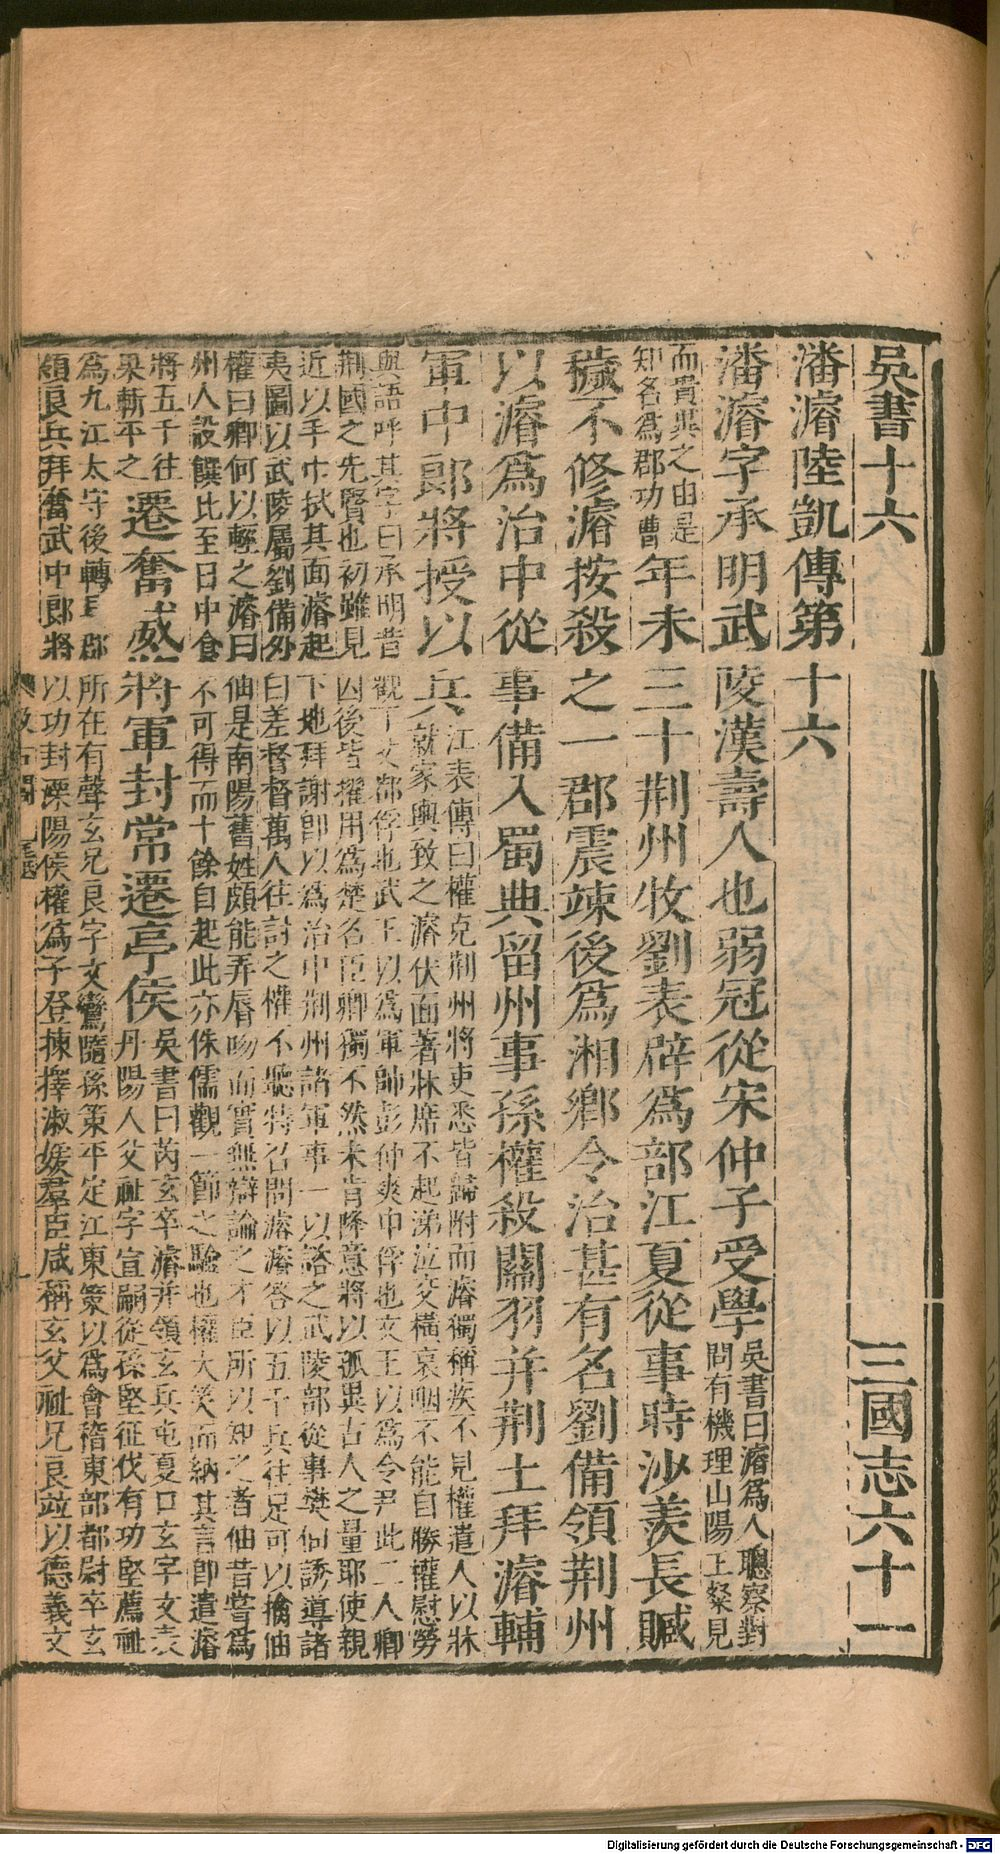 吳書十六　三國志六十一
潘濬陸凱傳第十六
潘濬字承明武陵漢壽人也弱冠從宋仲子受學吳書曰濬爲人聰察對
問有機理山陽王粲見
而貴異之由是
知名爲郡功曹年未三十荆州牧劉表辟爲部江夏從事時沙羨長贓
穢不修濬按殺之一郡震竦後爲湘鄉令治甚有名劉備領荆州
以濬爲治中從事備入蜀典留州事孫權殺關羽并荆土拜濬輔
軍中郎將授以兵江表傳曰權克荆州將吏悉皆歸附而濬獨稱疾不見權遣人以牀
就家輿致之濬伏面著牀席不起涕泣交橫哀咽不能自勝權慰勞
與語呼其字曰承明昔觀丁父鄀俘也武王以爲軍帥彭仲爽申俘也文王以爲令尹此二人卿
荆國之先賢也初雖見囚後皆擢用爲楚名臣卿獨不然未肯降意將以孤異古人之量耶使親
近以手巾拭其面濬起下地拜謝卽以爲治中荆州諸軍事一以諮之武陵部從事樊伷誘導諸
夷圖以武陵屬劉備外白差督督萬人往討之權不聽特召問濬濬答以五千兵往足可以擒伷
權曰卿何以輕之濬曰伷是南陽舊姓頗能弄脣吻而實無辯論之才臣所以知之者伷昔嘗爲
州人設饌比至日中食不可得而十餘自起此亦侏儒觀一節之驗也權大笑而納其言卽遣濬
將五千往
果斬平之遷奮威將軍封常遷亭侯吳書曰芮玄卒濬并領玄兵屯夏口玄字文表
丹陽人父祉字宣嗣從孫堅征伐有功堅薦祉
爲九江太守後轉吳郡所在有聲玄兄良字文鸞隨孫策平定江東策以爲會稽東部都尉卒玄
領良兵拜奮武中郎將以功封溧陽侯權爲子登揀擇淑媛羣臣咸稱玄父祉兄良竝以德義文
Digitalisierung gefördert durch die Deutsche Forschungsgemeinschaft - DFG